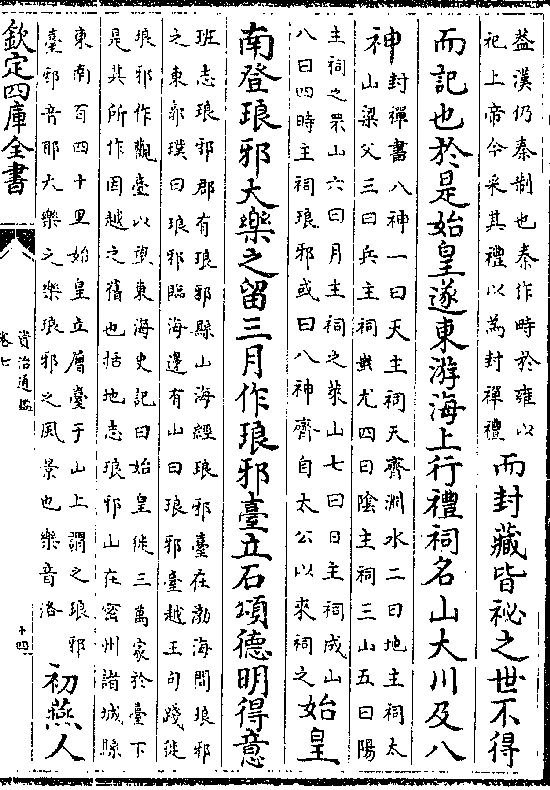 益漢仍秦制也秦作時於雍以
祀上帝今采其禮以為封禪禮
而封藏皆祕之世不得
而記也於是始皇遂東游海上行禮祠名山大川及八
神
封禪書八神一曰天主祠天齊淵水二曰地主祠太
山梁父三曰兵主祠蚩尤四曰陰主祠三山五曰陽
主祠之罘山六曰月主祠之萊山七曰日主祠成山
八曰四時主祠琅邪或曰八神齊自太公以來祠之
始皇
南登琅邪大樂之留三月作琅邪臺立石頌德明得意
班志琅邪郡有琅邪縣山海經琅邪臺在渤海間琅邪
之東郭璞曰琅邪臨海邊有山曰琅邪臺越王句踐徙
琅邪作觀臺以望東海史記曰始皇徙三萬家於臺下
是其所作因越之舊也括地志琅邪山在密州諸城縣
東南百四十里始皇立層臺于山上謂之琅邪
臺邪音耶大樂之樂琅邪之風景也樂音洛
初燕人
欽定四庫全書
資治通鑑
卷七
十四